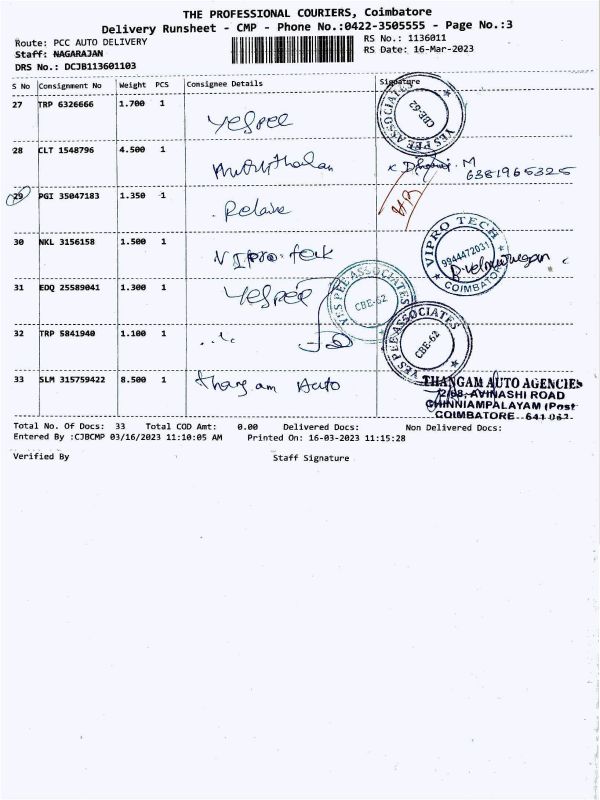 THE PROFESSIONAL COURIERS, Coimbatore
Delivery Runsheet - CMP - Phone No.:0422-3505555 - Page No.:3
Route: PCC AUTO DELIVERY
RS No.: 1136011
Staff: NAGARAJAN
RS Date: 16-Mar-2023
DRS No.: DCJB113601103
S No Consignment No Weight PCS Consignee Details Signature
27 TRP 6326666 1.700 1 Yespee
YES PEE ASSOCIATES
CBE-62
28 CLT 1548796 4.500 1
M
6381965325
29 PGI 35047183 1.350 1
30 NKL 3156158 1.500 1 Vipro. Tek
VIPRO TECH
9944472031
COIMBATORE
31 EOQ 25589041 1.300 1 Yespee
YES PEE ASSOCIATES
CBE-62
32 TRP 5841940 1.100 1
YES PEE ASSOCIATES
CBE-62
33 SLM 315759422 8.500 1 Thangam Auto
THANGAM AUTO AGENCIES
AVINASHI ROAD
CHINNIAMPALAYAM (Post
COIMBATORE - 641 062.
Total No. Of Docs: 33 Total COD Amt: 0.00 Delivered Docs: Non Delivered Docs:
Entered By :CJBCMP 03/16/2023 11:10:05 AM Printed On: 16-03-2023 11:15:28
Verified By Staff Signature